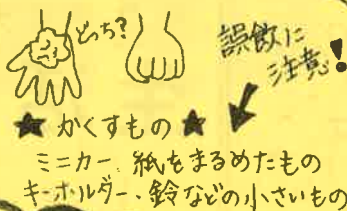 どっち?
誤飲に
注意!
★ かくすもの ★
ミニカー、紙をまるめたもの
キーホルダー、鈴などの小さいもの